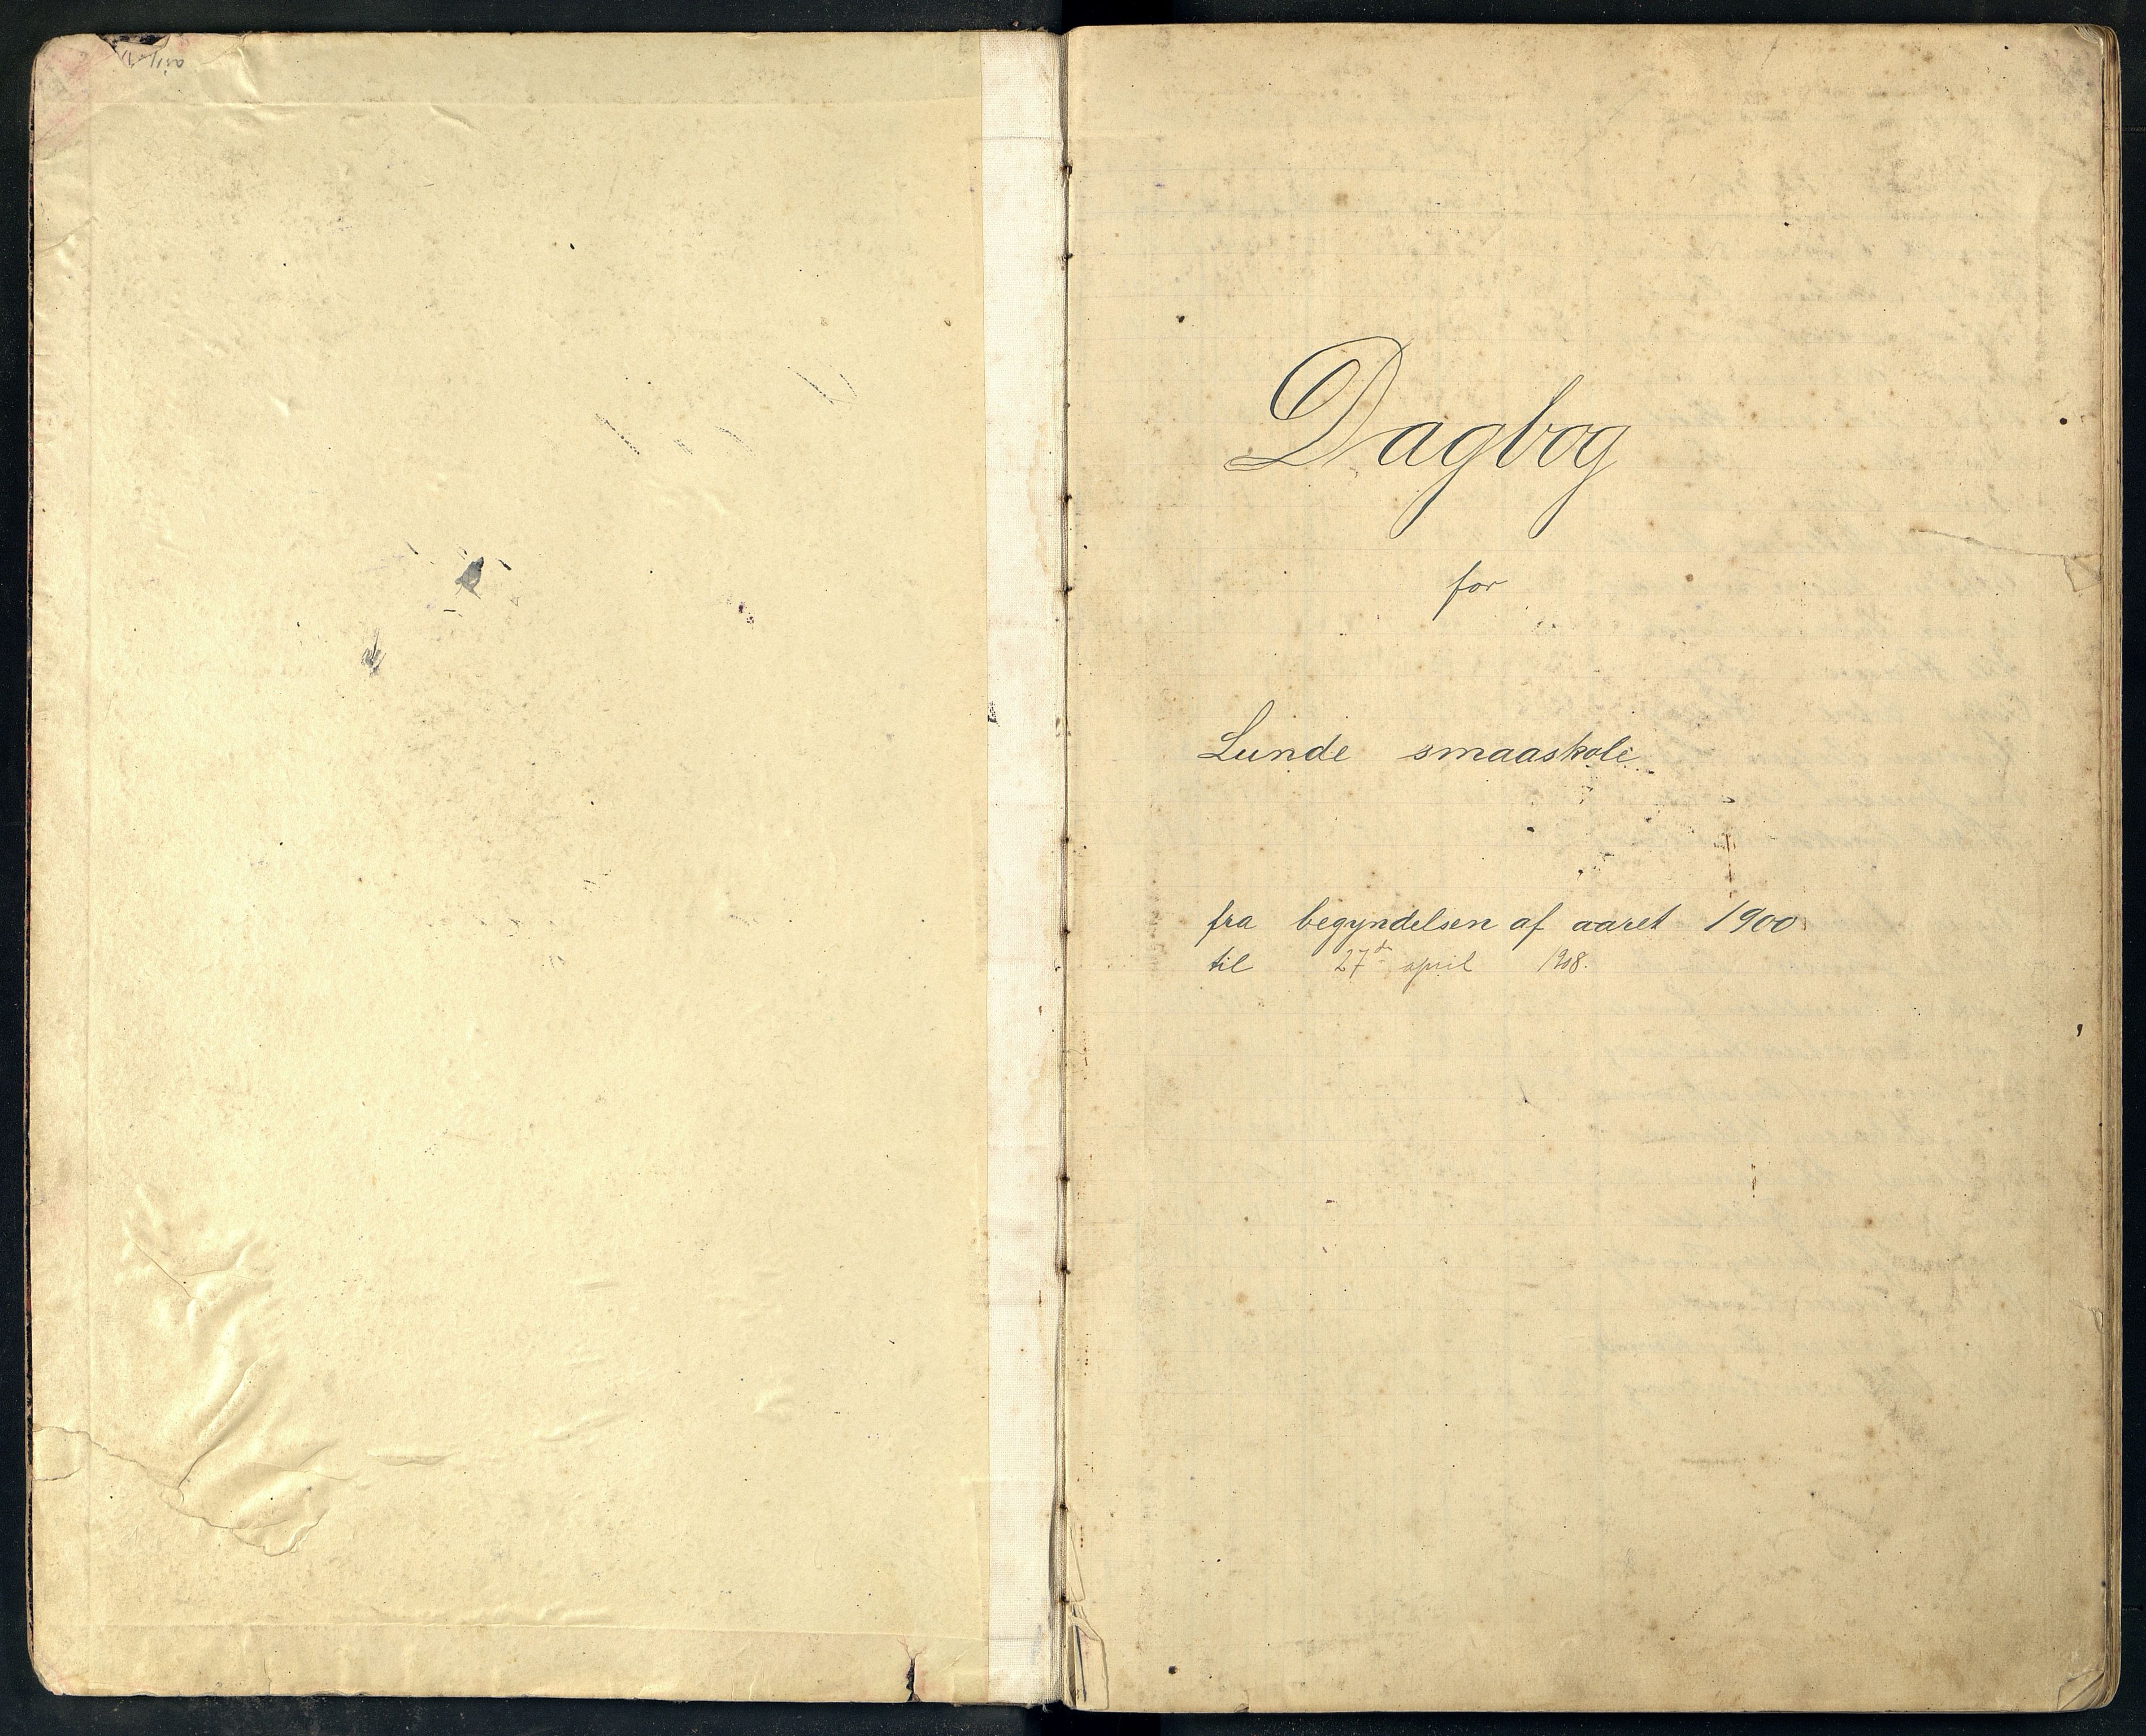 Dagbog
for
Lunde smaaskole
fra begyndelsen af aaret 1900
til 27de april 1908.